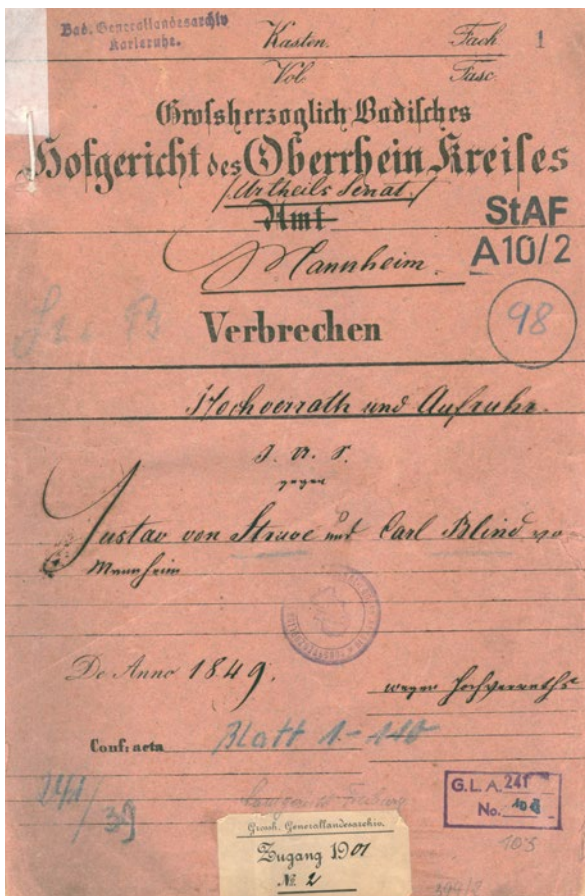 Bad. Generallandesarchiv
Karlsruhe.
Kasten. Fach 1
Vol. Fasc.
Grossherzoglich Badisches
Hofgericht des Oberrhein Kreises
/Urtheils Senat./
Amt
StAF
A 10/2
Mannheim.
98
Verbrechen
Hochverrath und Aufruhr.
J. U. S.
gegen
Gustav von Struve und Carl Blind von
Mannheim
De Anno 1849.
wegen Hochverraths
Conf: acta Blatt 1-110
241/39
G.L.A. 241
No.
103
Grossh. Generallandesarchiv.
Zugang 1901
№ 2